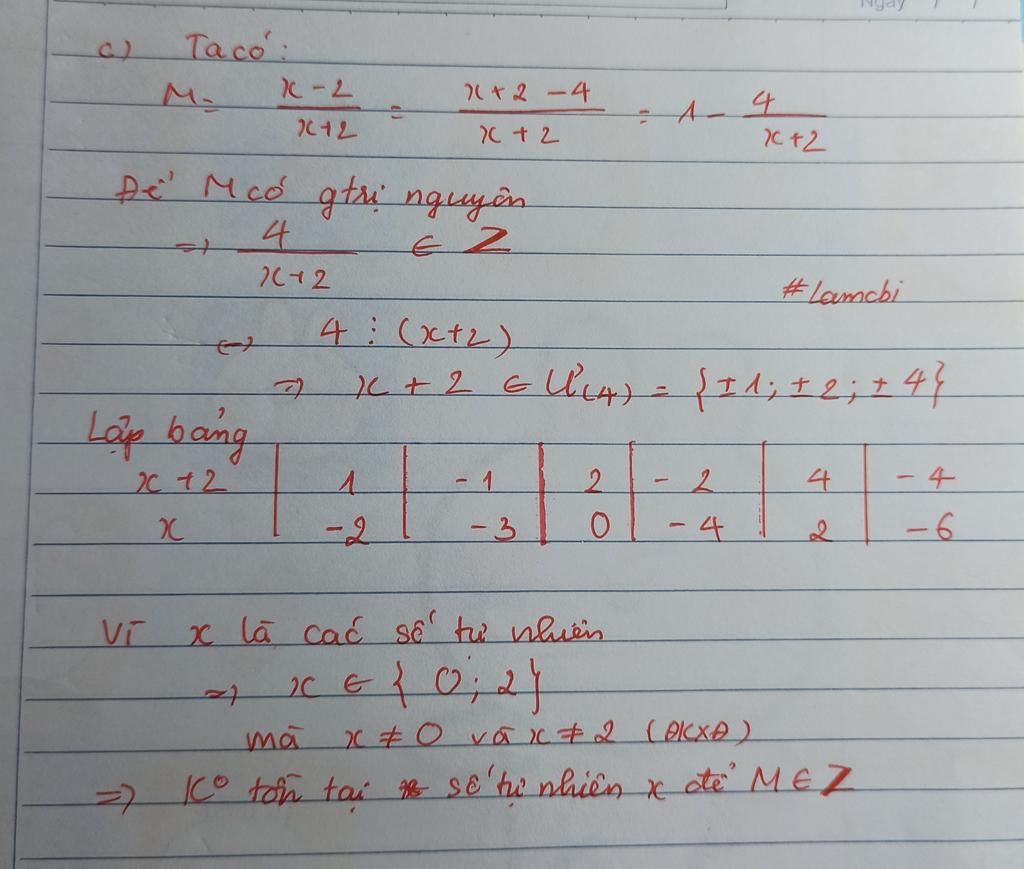 Ngày / /
c) Ta có:
M = \frac{x-2}{x+2} = \frac{x+2-4}{x+2} = 1 - \frac{4}{x+2}
Để M có gtrị nguyên
=> \frac{4}{x+2} ∈ Z
#Lamcbi
<-> 4 ⋮ (x+2)
=> x + 2 ∈ Ư(4) = {±1; ±2; ±4}
Lập bảng
x+2 | 1 | -1 | 2 | -2 | 4 | -4
x | -2 | -3 | 0 | -4 | 2 | -6
Vì x là các số tự nhiên
=> x ∈ { 0; 2}
mà x ≠ 0 và x ≠ 2 (ĐKXĐ)
=> K° tồn tại số tự nhiên x để M ∈ Z